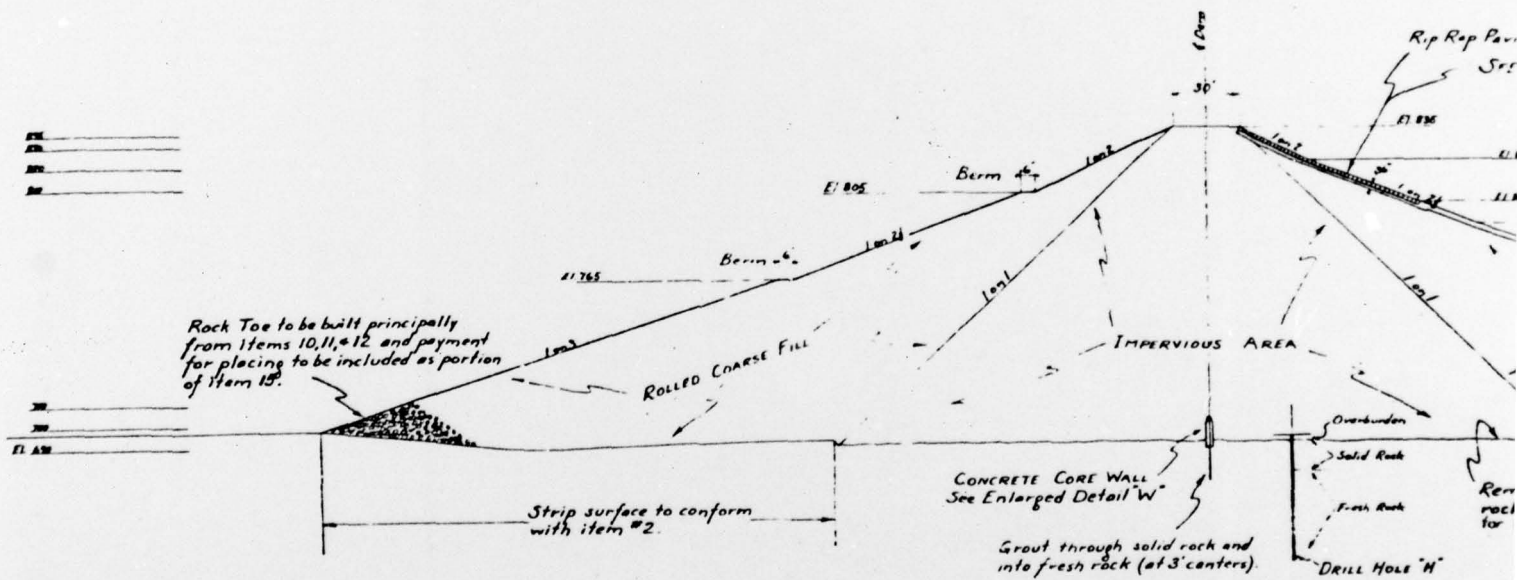 Rip Rap
30'
El. 835
1 on 2
1 on 2
Berm 6'
El 805
36"
1 on 2½
1 on 2½
Berm 6'
El 765
1 on 1
1 on 1
Rock Toe to be built principally
from Items 10,11,&12 and payment
for placing to be included as portion
of Item 15.
1 on 3
ROLLED COARSE FILL
IMPERVIOUS AREA
Overburden
Solid Rock
Fresh Rock
CONCRETE CORE WALL
See Enlarged Detail "W"
Strip surface to conform
with item #2.
Grout through solid rock and
into fresh rock (at 3' centers).
DRILL HOLE "H"